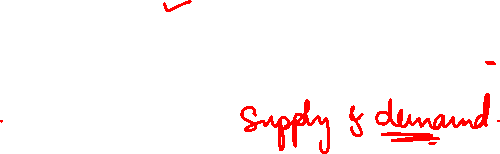 Supply & demand